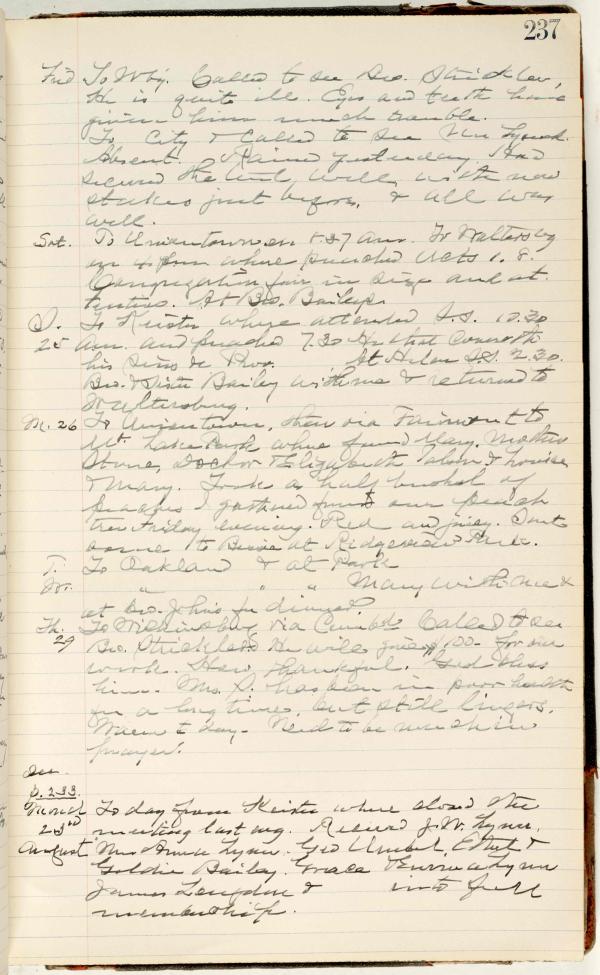 237
Frid To Wbg. Called to see Bro. Strickler,
He is quite ill. Eyes and teeth have
given him much trouble.
To City & Called to see
Absent. Rained yesterday. Had
secured the tent well with new
stakes just before, & all was
well.
Sat. To Uniontown on 8.27 am. To Waltersbg
on 4 pm where preached Acts 1.8.
Congregation fair in size and at-
tention. At Bro. Baileys.
S. To Keister where attended S.S. 10.30
25 am. and preached 7.30 He that Covereth
his sins &c Prov. St Helen S.S. 2.30.
Bro. & Sister Bailey with me & returned to
Waltersburg.
M. 26 To Uniontown, then via Fairmont to
Mt. Lake Park where found Mary, Mother
Stone, Doctor & Elizabeth & Louise
& Mary. Took a half bushel of
peaches I gathered from our peach
tree Friday evening. Red and juicy. Sent
some to at Ridgeview Park.
T. To Oakland & at Park
W. " " " Mary with me &
at Bro. John's for dinner.
Th. To Wilkinsburg via Cumbd. Called to see
29 Bro. Strickler. He will give $100- for our
work. How thankful. God bless
him. Mrs. S. has been in poor health
for a long time, but still lingers.
Warm today. Need to be much in
prayer.
See
p. 233.
Mond To day from Keister where closed the
23rd meeting last evg. Received J.W. Lynn,
August Mrs Lynn. Geo Umbel, Ethel &
Goldie Bailey. Grace Lynn
James Langdon & into full
membership.